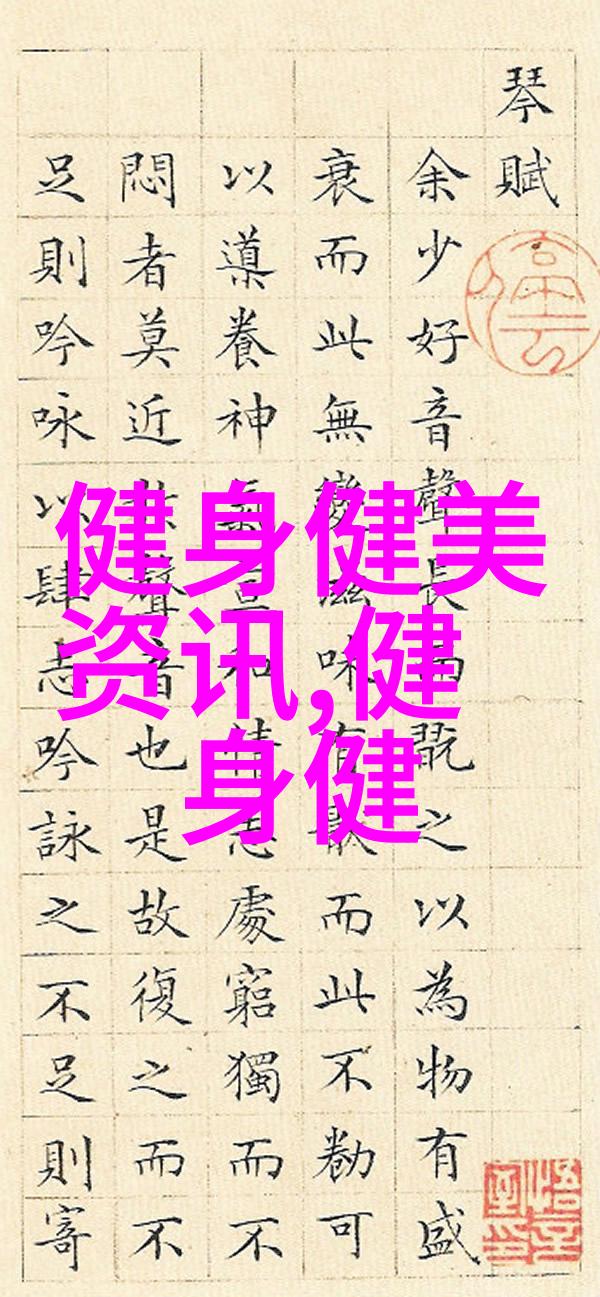 琴賦
余少好音聲長翫之以為物有盛
衰而此無變滋味有而此不勌可
以導養神氣宣和情志處窮獨而不
悶者莫近於聲音也是故復之而不
足則吟咏以肆志吟詠之不足則寄
健身健美
资讯,健
身健